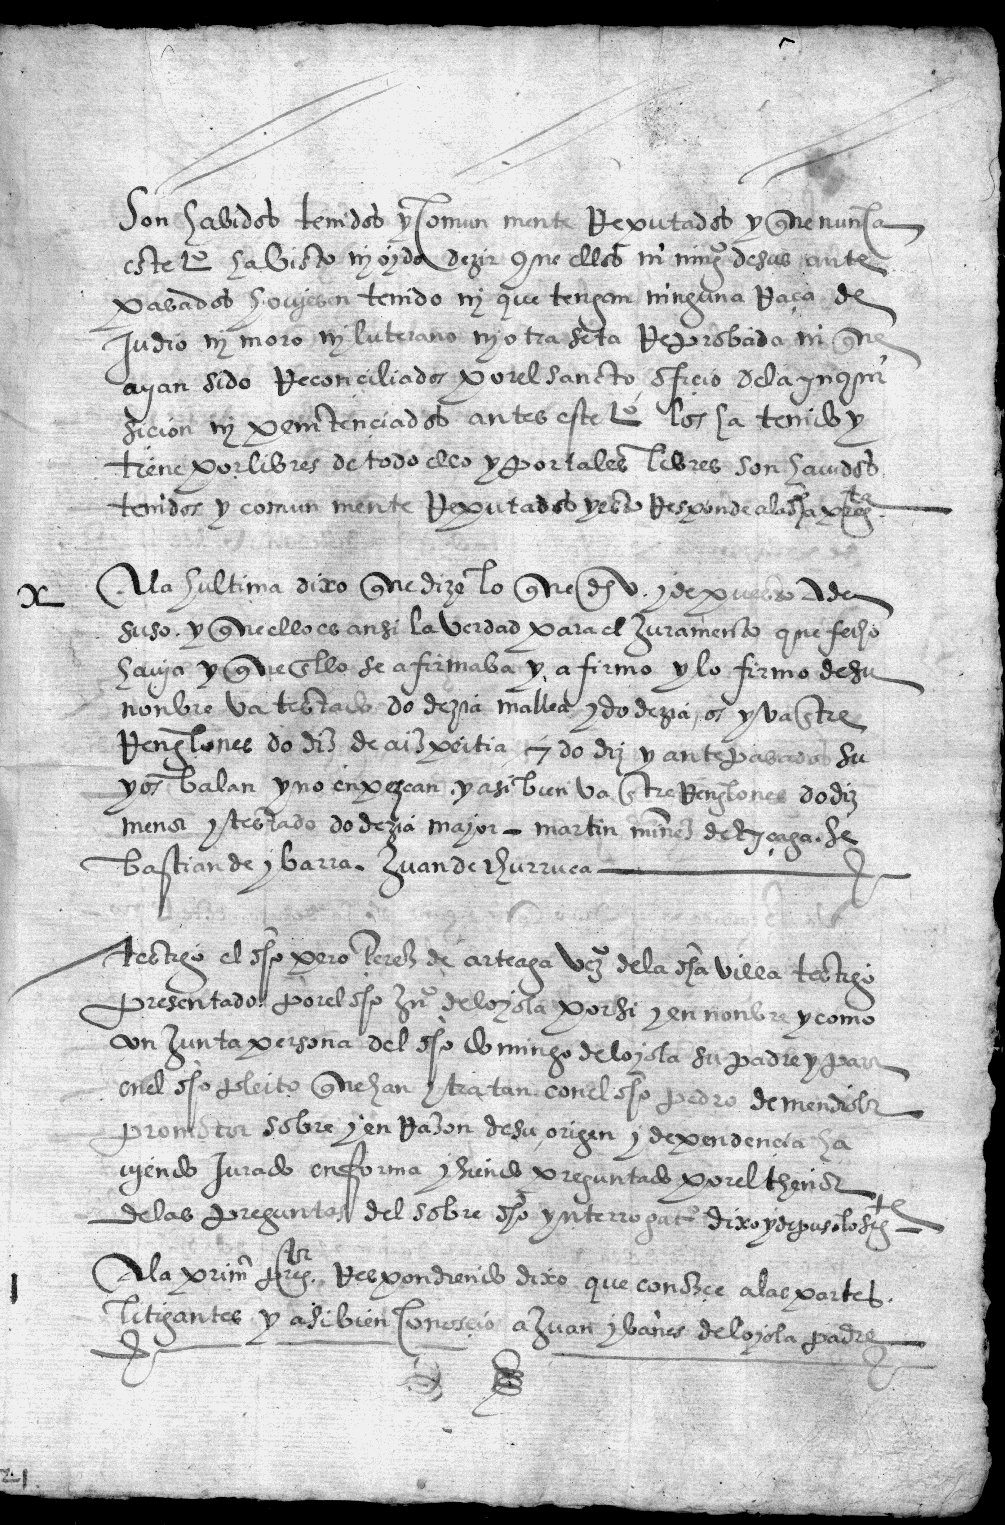 Son havidos tenidos y comun mente Reputados y que nunca
este tº ha visto ny oydo dezir que ellos ni ningº de sus ante
pasados houiesen tenido ny que tengan ninguna Raça de
Judio ny moro ny luterano ny otra secta Reprobada ni que
ayan sido Reconciliados por el sancto oficio de la ynqui
sicion ny penitenciados antes este tº los ha tenido y
tiene por libres de todo ello y por tales libres son hauidos
tenidos y comun mente Reputados y esto Responde a la dha pregta
X
A la hultima dixo que dize lo que dho v. y depuesto de
suso. y que ello es ansi la verdad para el Juramento que fecho
hauja y que en ello se afirmaba y afirmo y lo firmo de su
nonbre va testado do dezia mallea y do dezia os y va entre
Renglones do diz de aizpeitia y do diz y antepasados su
yos balan y no enpezcan. y asi bien va entre Renglones do diz
menor y testado do dezia major - martin minez de eyçaga. Se
bastian de ybarra. Juan de churruca
testigo el dho pero perez de arteaga vezº de la dha villa testigo
presentado por el dho Juº de loyola por si y en nonbre y como
conJunta persona del dho domingo de loyola su padre y para
en el dho pleito que han y tratan con el dho pedro de mendiola
promotor sobre y en Razon de su origen y dependencia ha
viendo Jurado en forma y siendo preguntado por el thenor
de las preguntas del sobre dho ynterrogatº dixo y depuso lo sigte
1
A la primª preg. Respondiendo dixo que conosce a las partes
litigantes y asi bien conoscio a Juan ybañes de loyola padre